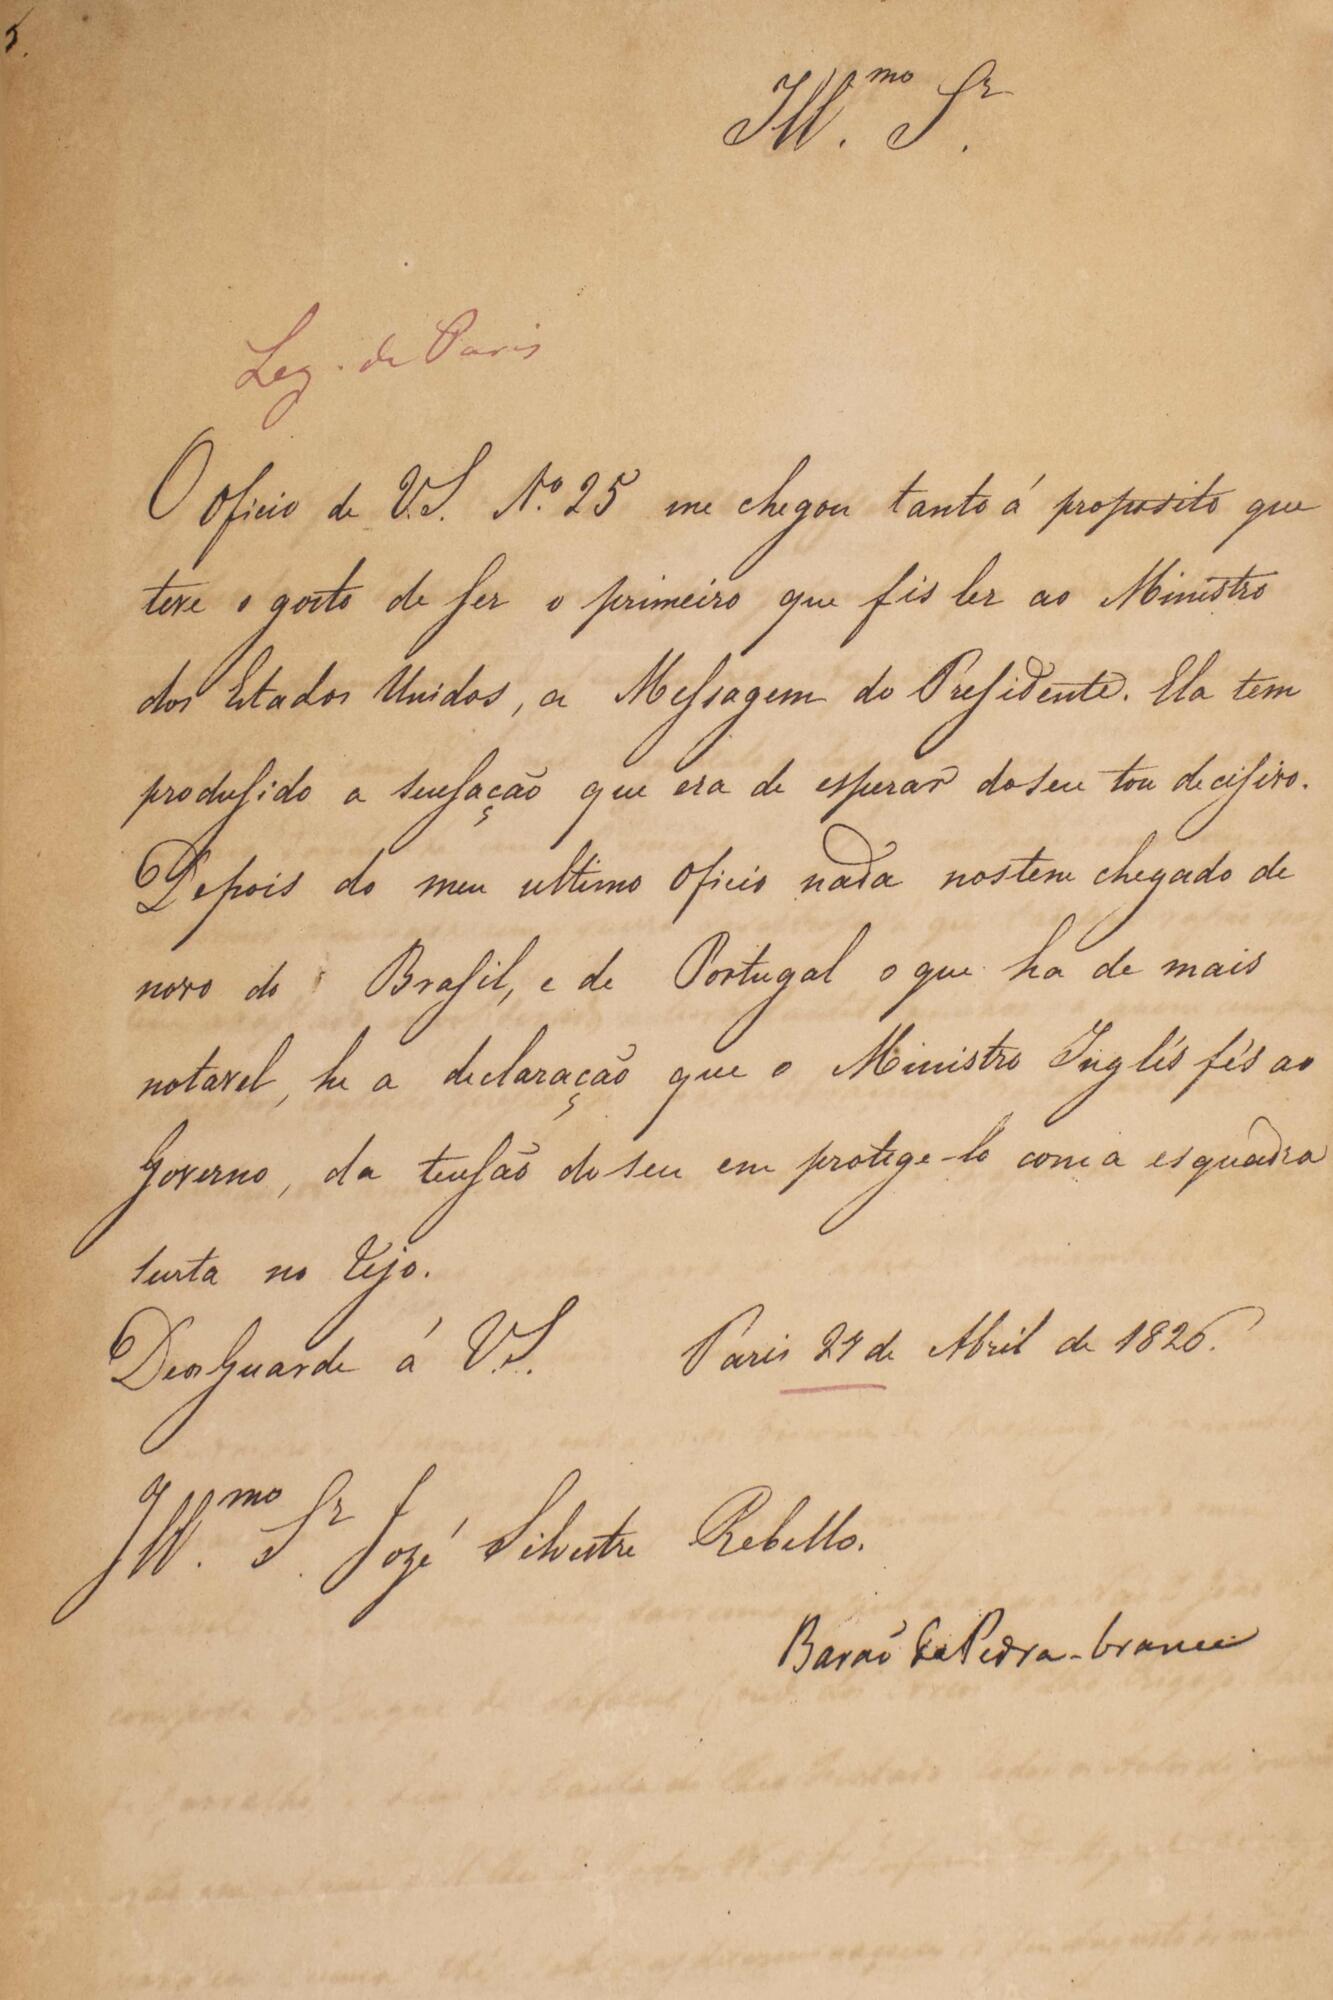 5.
Ill.mo Sr.
Leg. de Paris
O Oficio de V.S. N.o 25 me chegou tanto á proposito que
teve o gosto de ser o primeiro que fis ler ao Ministro
dos Estados Unidos, a Messagem do Presidente. Ela tem
produsido a sensação que era de esperar do seu tou decisivo.
Depois do meu ultimo oficio nada nos tem chegado de
novo do Brasil, e de Portugal o que ha de mais
notavel, he a declaração que o Ministro Inglês fés ao
Governo, da tensão do seu em protege-lo com a esquadra
surta no Tejo.
Deos Guarde á V.S. Paris 27 de Abril de 1826.
Ill.mo Sr. Jozé Silvestre Rebello.
Barão da Pedra-branca